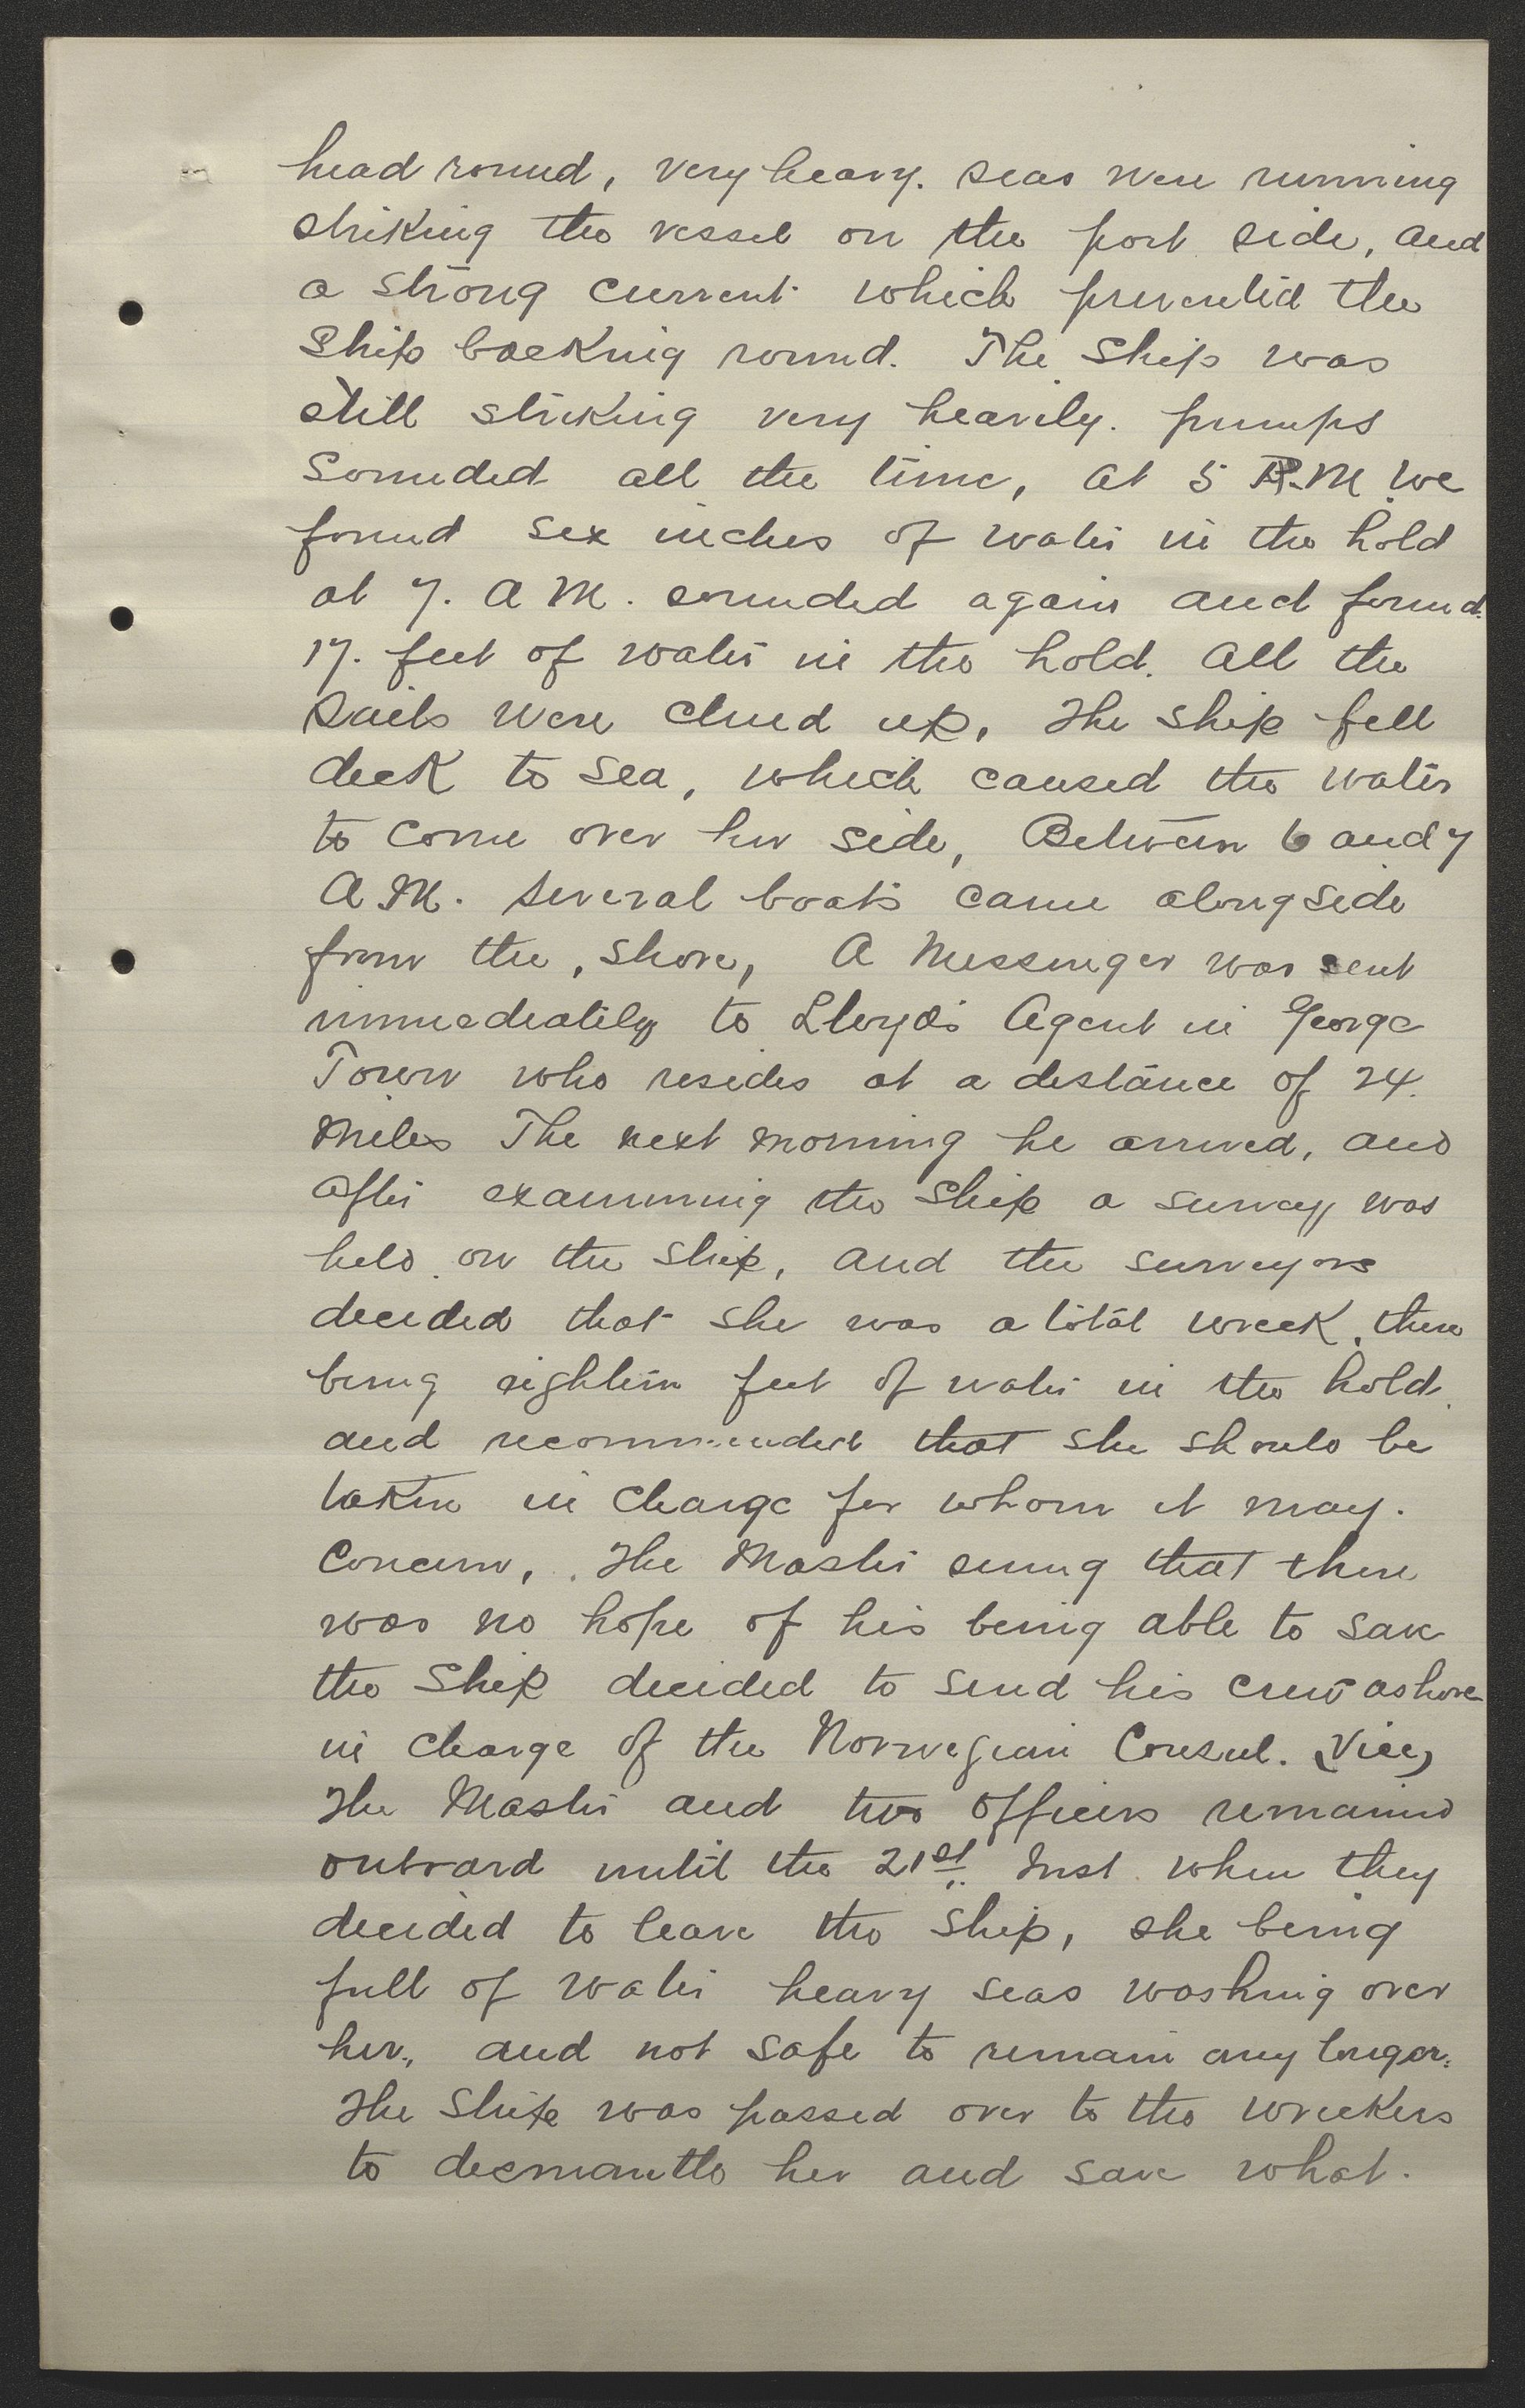 head round, very heavy. seas were running
striking the vessel on the port side, and
a strong current which prevented the
Ship backing round. The Ship was
still striking very heavily. pumps
Sounded all the time, at 5 P.M. we
found six inches of water in the hold
at 7. A M. sounded again and found.
17. feet of water in the hold. All the
Sails were clued up, The Ship fell
deck to sea, which caused the water
to come over her side, Between 6 and 7
A M. several boats came alongside
from the, shore, A Messenger was sent
immediately to Lloyds Agent in George
Town who resides at a distance of 24.
Miles The next morning he arrived, and
after examining the Ship a survey was
held on the ship, and the surveyors
decided that she was a total wreck, there
being eighteen feet of water in the hold.
and recommended that she should be
taken in charge for whom it may.
Concern, The Master seeing that there
was no hope of his being able to save
the Ship decided to send his crew ashore
in charge of the Norwegian Consul. (Vice)
The Master and two officers remained
onboard until the 21st. Inst when they
decided to leave the Ship, she being
full of water heavy seas washing over
her, and not safe to remain any longer.
The Ship was passed over to the wreckers
to dismantle her and save what.